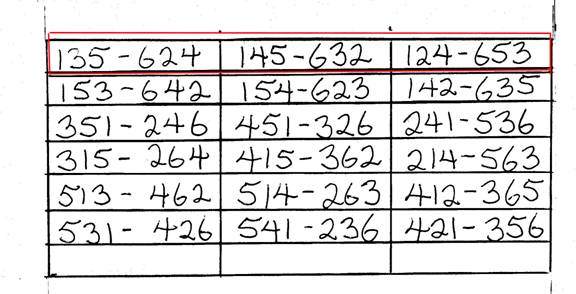 135-624 145-632 124-653
153-642 154-623 142-635
351-246 451-326 241-536
315- 264 415-362 214-563
513- 462 514-263 412-365
531- 426 541-236 421-356